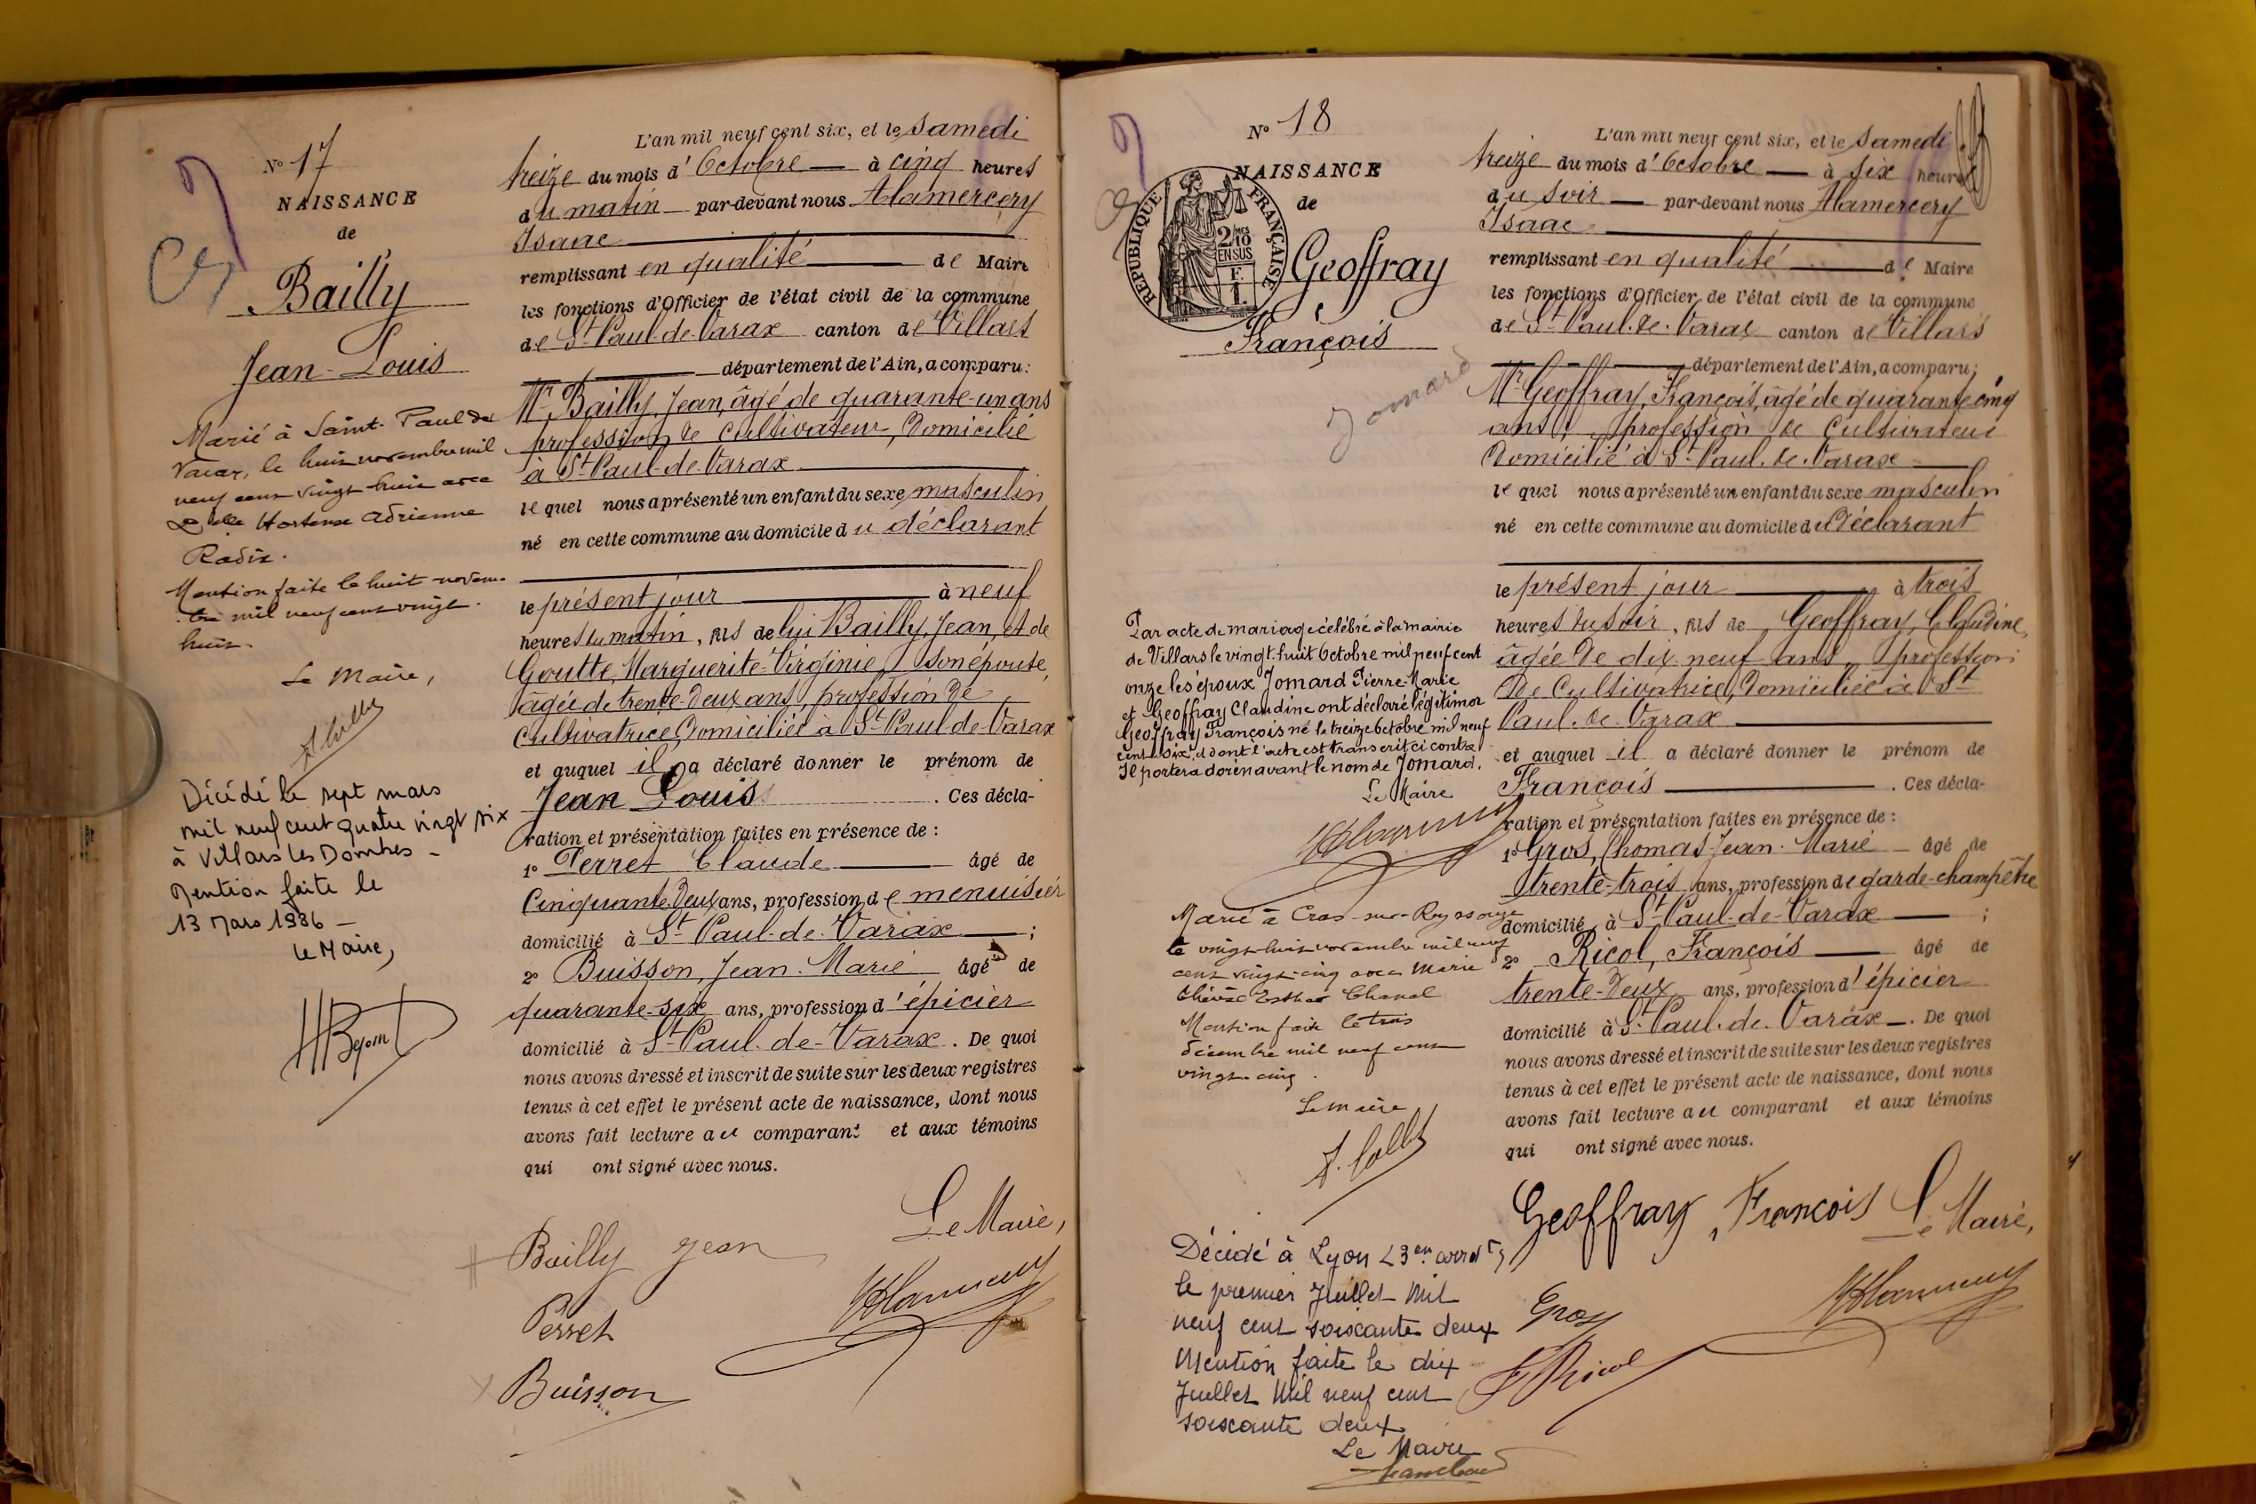 N° 17
NAISSANCE
de
Bailly
Jean-Louis
Marié à Saint-Paul de
Varax, le huit novembre mil
neuf cent vingt-huit avec
Hortense Adrienne
Mention faite le huit novem-
bre mil neuf cent vingt-
huit.
Le Maire,
Décédé le sept mars
mil neuf cent quatre vingt six
à Villars les Dombes -
Mention faite le
13 Mars 1986 -
Le Maire,
L'an mil neuf cent six, et le Samedi
treize du mois d'Octobre à cinq heures
du matin par-devant nous Alamercery
Isaac
remplissant en qualité de Maire
les fonctions d'Officier de l'état civil de la commune
de St Paul-de-Varax canton de Villars
département de l'Ain, a comparu:
Mr Bailly, Jean, âgé de quarante-un ans
profession de cultivateur, domicilié
à St Paul-de-Varax
lequel nous a présenté un enfant du sexe masculin
né en cette commune au domicile du déclarant
le présent jour à neuf
heures du matin, fils de lui Bailly, Jean, et de
Goutte, Marguerite-Virginie, son épouse,
âgée de trente-deux ans, profession de
cultivatrice, domiciliée à St Paul-de-Varax
et auquel il a déclaré donner le prénom de
Jean Louis. Ces décla-
ration et présentation faites en présence de :
1° Perret Claude âgé de
Cinquante-deux ans, profession de menuisier
domicilié à St Paul-de-Varax ;
2° Buisson, Jean-Marie âgé de
quarante-six ans, profession d'épicier
domicilié à St Paul-de-Varax. De quoi
nous avons dressé et inscrit de suite sur les deux registres
tenus à cet effet le présent acte de naissance, dont nous
avons fait lecture au comparant et aux témoins
qui ont signé avec nous.
Le Maire,
Bailly Jean
Perret
Buisson
N° 18
NAISSANCE
de
RÉPUBLIQUE FRANÇAISE
2/10
EN SUS
Geoffray
François
Jomard
Par acte de mariage célébré à la mairie
de Villars le vingt-huit Octobre mil neuf cent
onze les époux Jomard Pierre-Marie
et Geoffray Claudine ont déclaré légitimer
Geoffray François né le treize Octobre mil neuf
cent six, et dont l'acte est transcrit ci contre
Il portera dorénavant le nom de Jomard.
Le Maire
Marié à Cras-sur-Reyssouze
le vingt-huit novembre mil neuf
cent vingt-cinq avec Marie
Esther Chanel
Mention faite le trois
décembre mil neuf cent
vingt-cinq.
Le Maire
Décédé à Lyon (3em arrdt)
le premier Juillet Mil
neuf cent soixante deux
Mention faite le dix
Juillet Mil neuf cent
soixante deux
Le Maire
L'an mil neuf cent six, et le Samedi
treize du mois d'Octobre à six heures
du soir par-devant nous Alamercery
Isaac
remplissant en qualité de Maire
les fonctions d'Officier de l'état civil de la commune
de St Paul-de-Varax canton de Villars
département de l'Ain, a comparu;
Mr Geoffray, François, âgé de quarante cinq
ans, profession de Cultivateur
domicilié à St Paul-de-Varax
lequel nous a présenté un enfant du sexe masculin
né en cette commune au domicile du déclarant
le présent jour à trois
heures du soir, fils de Geoffray, Claudine,
âgée de dix neuf ans, profession
de Cultivatrice, domiciliée à St
Paul-de-Varax
et auquel il a déclaré donner le prénom de
François. Ces décla-
ration et présentation faites en présence de :
1° Gros, Thomas-Jean-Marie âgé de
trente-trois ans, profession de garde-champêtre
domicilié à St Paul-de-Varax ;
2° Ricol, François âgé de
trente-deux ans, profession d'épicier
domicilié à St Paul-de-Varax. De quoi
nous avons dressé et inscrit de suite sur les deux registres
tenus à cet effet le présent acte de naissance, dont nous
avons fait lecture au comparant et aux témoins
qui ont signé avec nous.
Geoffray, François Le Maire,
Gros
F Ricol